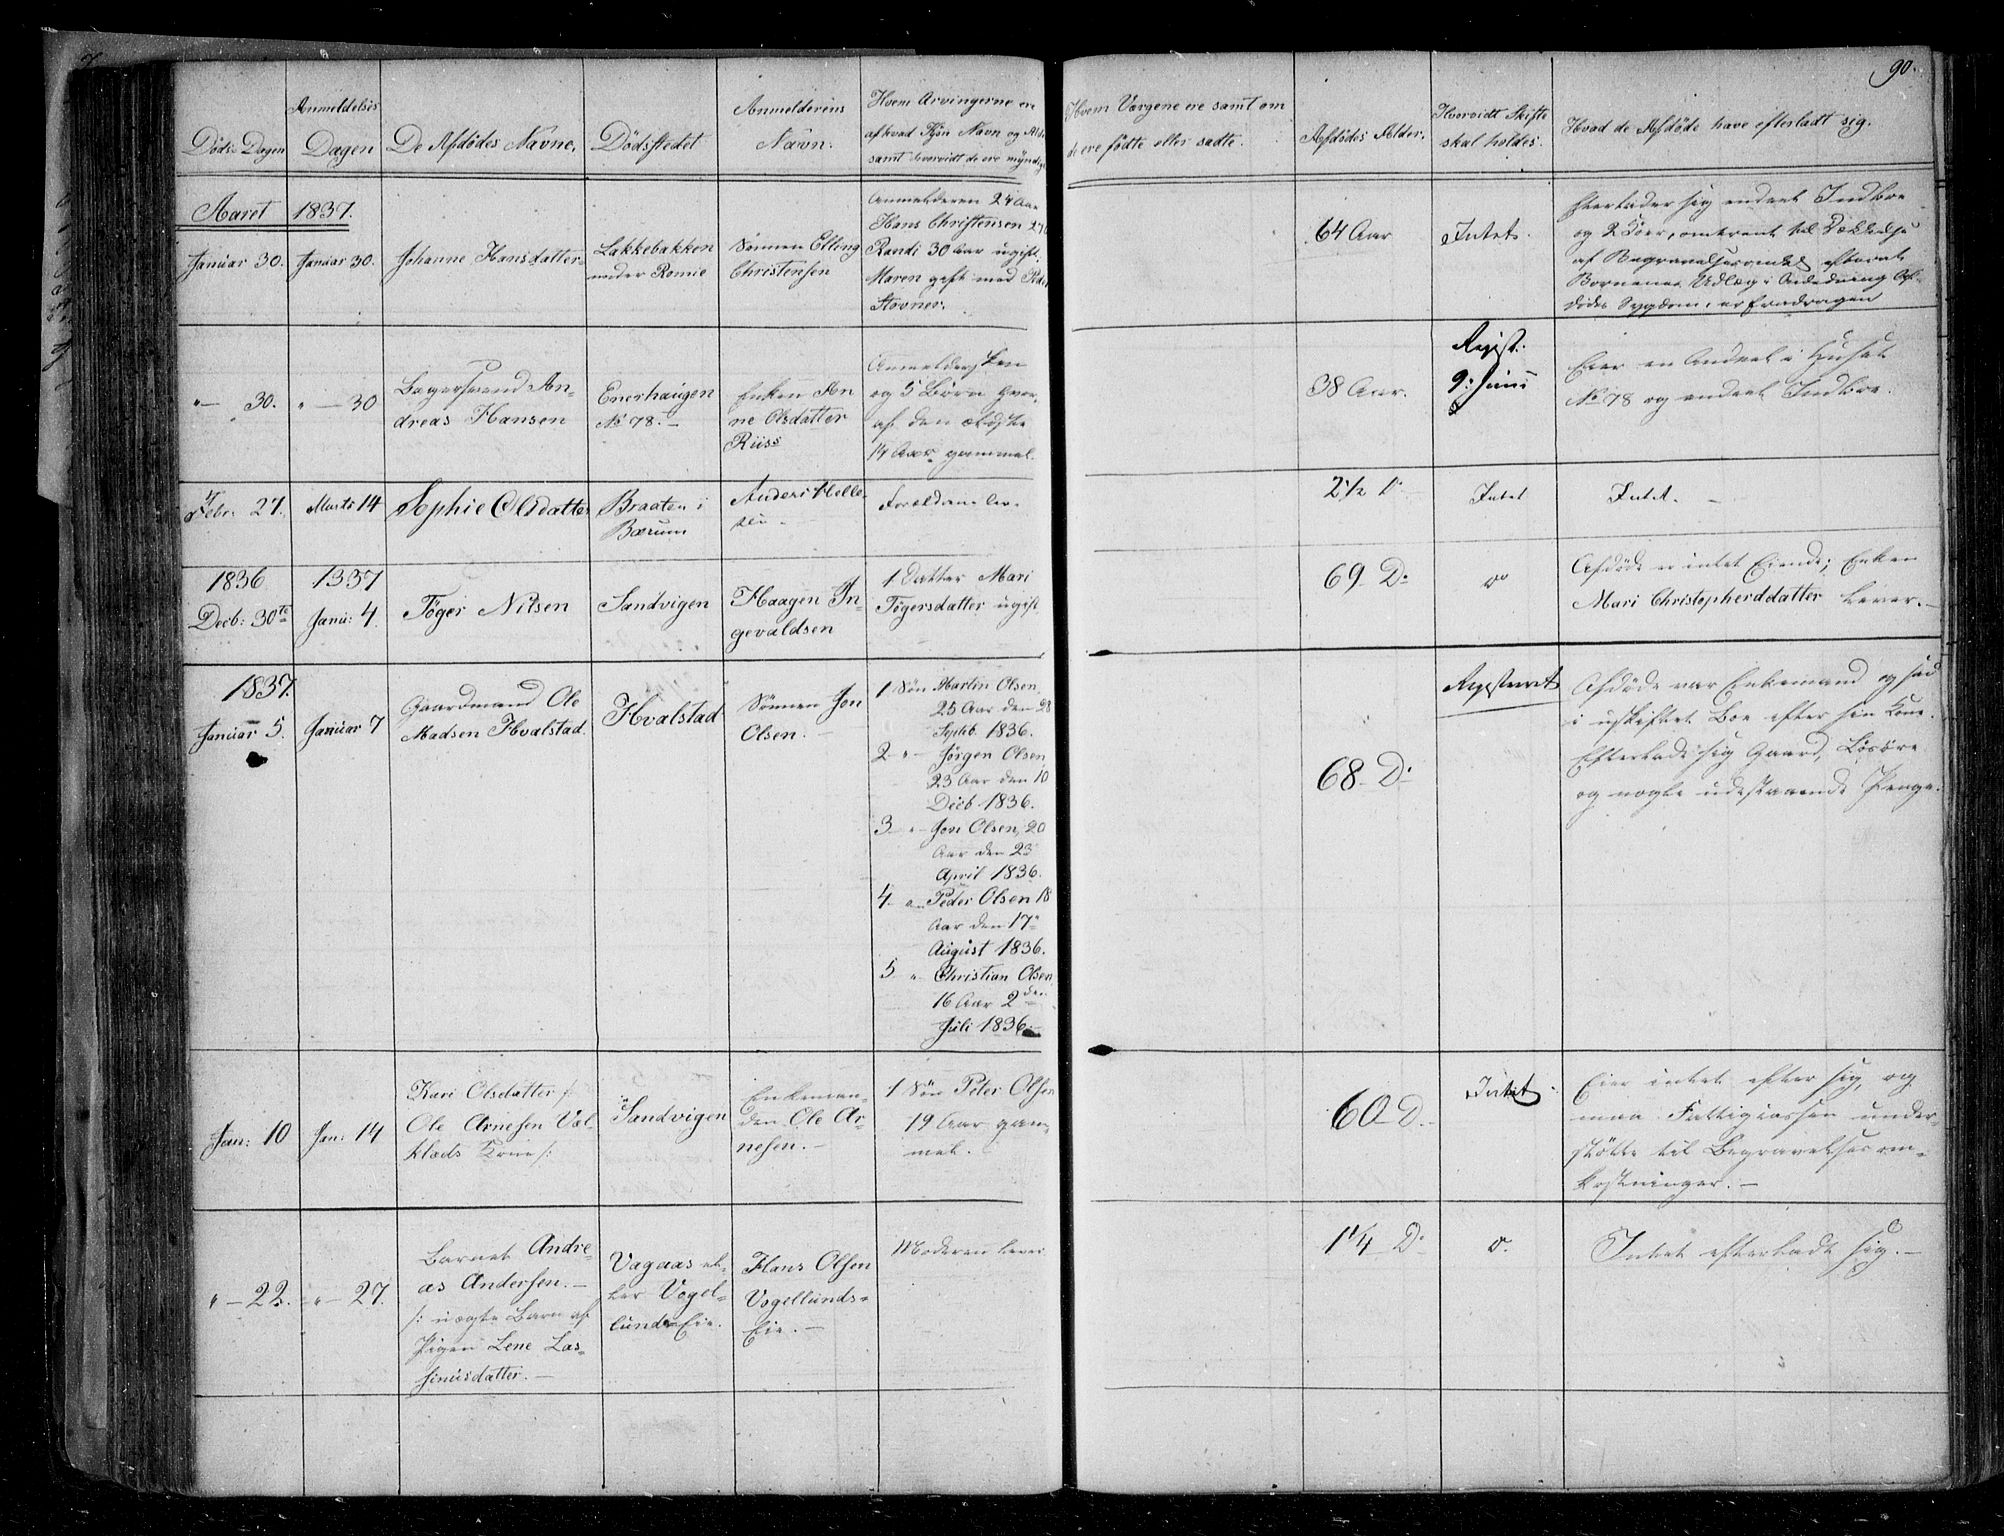 90.
Døds-Dagen
Anmeldelses
Dagen
De Afdødes Navne.
Dödsstedet
Anmelderens
Navn.
Hvem Arvingerne ere
af hvad Kjøn Navn og Alder
samt hvorvidt de ere myndige
Hvem Værgene ere samt om
de ere födte eller satte.
Afdödes Alder.
Hvorvidt Skifte
skal holdes.
Hvad de Afdöde have efterladt sig.
Aaret 1837.
Januar 30.
Januar 30.
Johanne Hansdatter
Lakkebakken
under Romie
Sönnen Elling
Christensen
Anmelderen 24 Aar
Hans Christensen 27
Randi 30 Aar ugift.
Maren gift med Peder
Stovner.
64 Aar
Intet.
Efterlader sig endeel Indboe
og 2 Köer, omtrent til Dækkelse
af Begravelsesomkost. efterat
Børnenes Udlæg i Anledning Af-
dödes Sygdom, er fradragen
"— 30.
" — 30
Bøgersvend An-
dreas Hansen
Enerhaugen
No 78. —
Enken An
ne Olsdatter
Riiss
Anmeldersken
og 5 Börn hvor-
af den ældste
14 Aar gammel.
38 Aar.
Regist.
9. Juni
Eier en Andeel i Huset
No 78 og endeel Indboe.
Febr. 27.
Marts 14
Sophie Olsdatter
Braaten i
Bærum
Anders Helle-
Forældrene lev.
2½ D.
Intet
Intet. —
1836
Decb: 30te
1837
Janu: 4.
Töger Nilsen
Sandvigen
Haagen In-
gevaldsen
1 Datter Mari
Tögersdatter ugift
69 D:
do
Afdøde er intet Eiende; Enken
Mari Christopherddatter lever. —
1837.
Januar 5.
Januar 7
Gaardmand Ole
Madsen Hvalstad.
Hvalstad
Sönnen Jon
Olsen. —
1 Sön Martin Olsen,
25 Aar den 28
Septb. 1836.
2 " Jörgen Olsen,
23 Aar den 10
Decb 1836.
3 " Jon Olsen, 20
Aar den 23
April 1836.
4 " Peder Olsen 18
Aar den 17
August 1836.
5 " Christian Olsen,
16 Aar 2den
Juli 1836. —
68 D:
Registreret
Afdøde var Enkemand og sad
i uskiftet Boe efter sin Kone.
Efterlade sig Gaard, Lösöre
og nogle udestaaende Penge.
Jan: 10
Jan: 14
Kari Olsdatter /:
Ole Arnesen Væl-
klads Kone :/
Sandvigen
Enkeman-
den Ole Ar-
nesen. —
1 Sön Peter Olsen
19 Aar gam-
mel.
60 D.
Intet
Eier intet efter sig, og
maa Fattigcassen under-
støtte til Begravelsesom-
kostninger. —
" — 22.
" — 27.
Barnet Andre-
as Andersen. —
/: uægte Barn af
Pigen Lene Las-
sinusdatter. —
Vagaas el-
ler Vogel-
lunds Eie.
Hans Olsen
Vogellunds=
Eie. —
Moderen lever
1¼ D:
do.
Intet efterladt sig. —